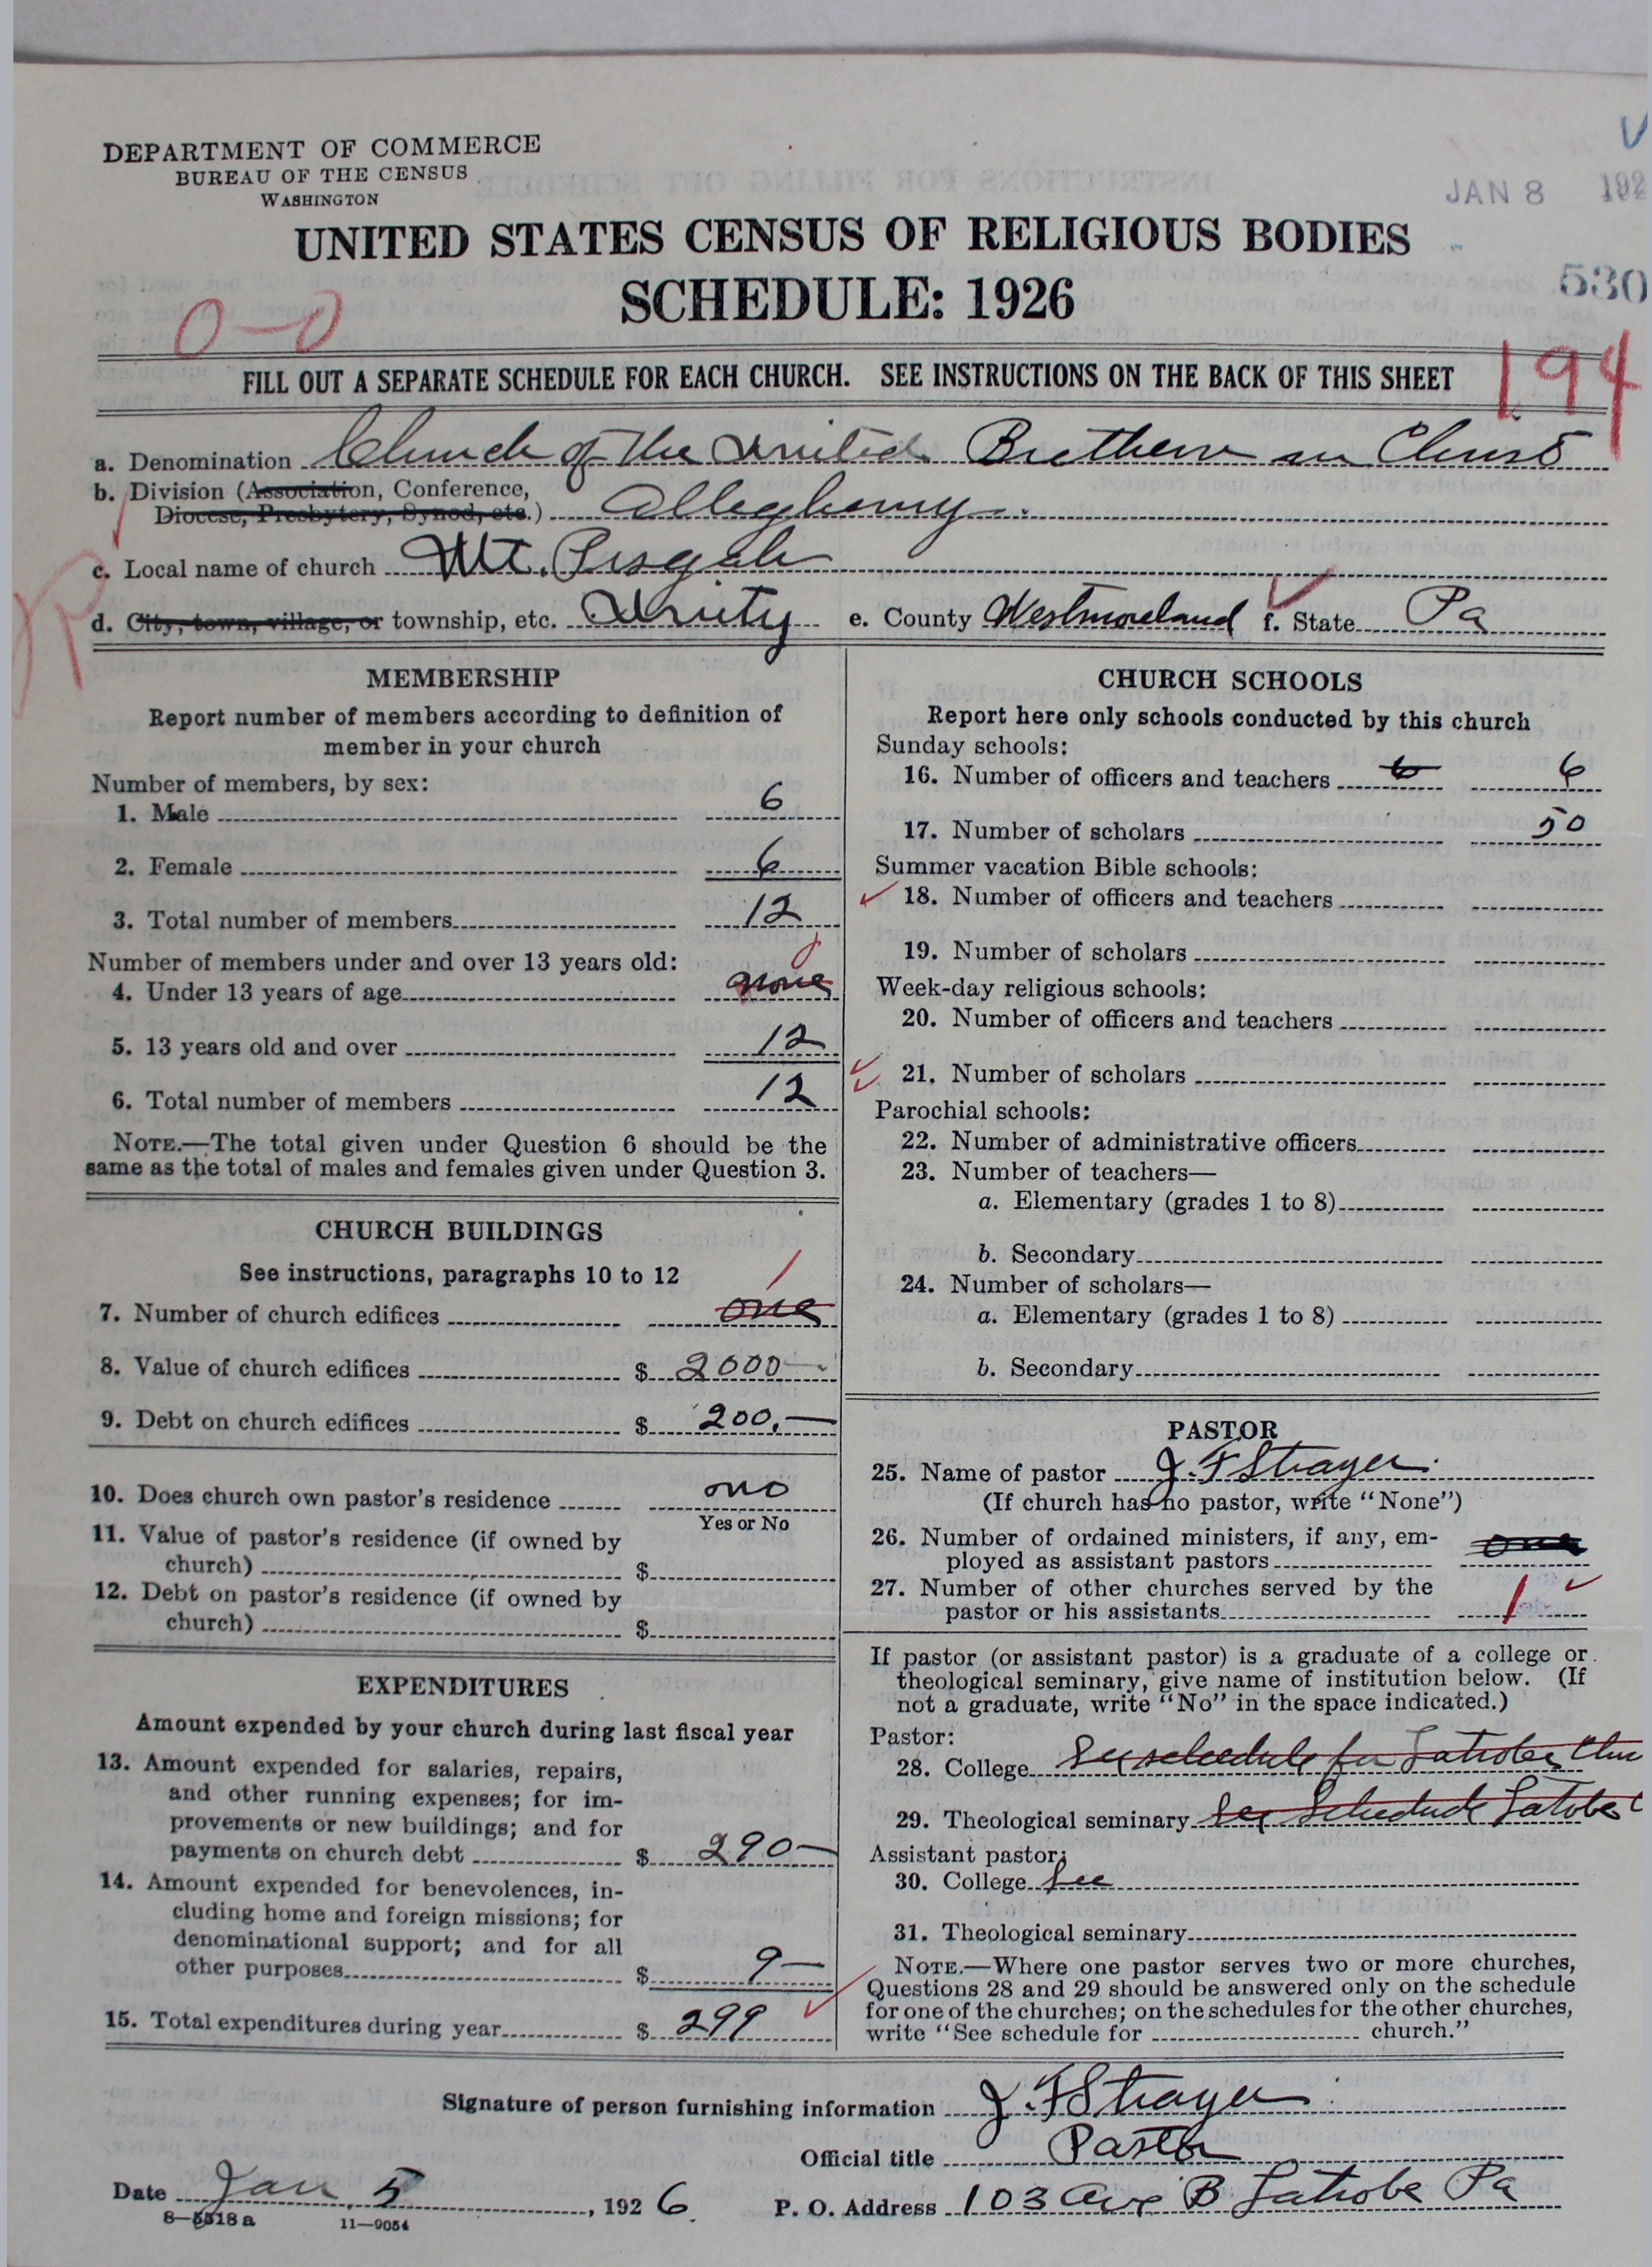 DEPARTMENT OF COMMERCE
BUREAU OF THE CENSUS
WASHINGTON
JAN 8 192
UNITED STATES CENSUS OF RELIGIOUS BODIES
SCHEDULE: 1926
530
0-0
194
FILL OUT A SEPARATE SCHEDULE FOR EACH CHURCH. SEE INSTRUCTIONS ON THE BACK OF THIS SHEET
a. Denomination Church of the United Brethern in Christ
b. Division (Association, Conference,
Diocese, Presbytery, Synod, etc.) Allegheny
c. Local name of church Mt. Pisgah
d. City, town, village, or township, etc. Unity e. County Westmoreland f. State Pa
MEMBERSHIP
Report number of members according to definition of
member in your church
Number of members, by sex:
1. Male 6
2. Female 6
3. Total number of members 12
Number of members under and over 13 years old:
4. Under 13 years of age none
5. 13 years old and over 12
6. Total number of members 12
NOTE.—The total given under Question 6 should be the
same as the total of males and females given under Question 3.
CHURCH BUILDINGS
See instructions, paragraphs 10 to 12
7. Number of church edifices one 1
8. Value of church edifices $ 2000—
9. Debt on church edifices $ 200.—
10. Does church own pastor's residence no
Yes or No
11. Value of pastor's residence (if owned by
church) $
12. Debt on pastor's residence (if owned by
church) $
EXPENDITURES
Amount expended by your church during last fiscal year
13. Amount expended for salaries, repairs,
and other running expenses; for im-
provements or new buildings; and for
payments on church debt $ 290—
14. Amount expended for benevolences, in-
cluding home and foreign missions; for
denominational support; and for all
other purposes $ 9—
15. Total expenditures during year $ 299
CHURCH SCHOOLS
Report here only schools conducted by this church
Sunday schools:
16. Number of officers and teachers 6 6
17. Number of scholars 50
Summer vacation Bible schools:
18. Number of officers and teachers
19. Number of scholars
Week-day religious schools:
20. Number of officers and teachers
21. Number of scholars
Parochial schools:
22. Number of administrative officers
23. Number of teachers—
a. Elementary (grades 1 to 8)
b. Secondary
24. Number of scholars—
a. Elementary (grades 1 to 8)
b. Secondary
PASTOR
25. Name of pastor J. F Strayer
(If church has no pastor, write "None")
26. Number of ordained ministers, if any, em-
ployed as assistant pastors one
27. Number of other churches served by the
pastor or his assistants 1
If pastor (or assistant pastor) is a graduate of a college or
theological seminary, give name of institution below. (If
not a graduate, write "No" in the space indicated.)
Pastor:
28. College See schedule for Latrobe Chu
29. Theological seminary See Schedule Latrobe C
Assistant pastor:
30. College See
31. Theological seminary
NOTE.—Where one pastor serves two or more churches,
Questions 28 and 29 should be answered only on the schedule
for one of the churches; on the schedules for the other churches,
write "See schedule for church."
Signature of person furnishing information J. F Strayer
Official title Pastor
Date Jan 5, 1926 P. O. Address 103 Ave B Latrobe Pa
8—5518a 11—9054